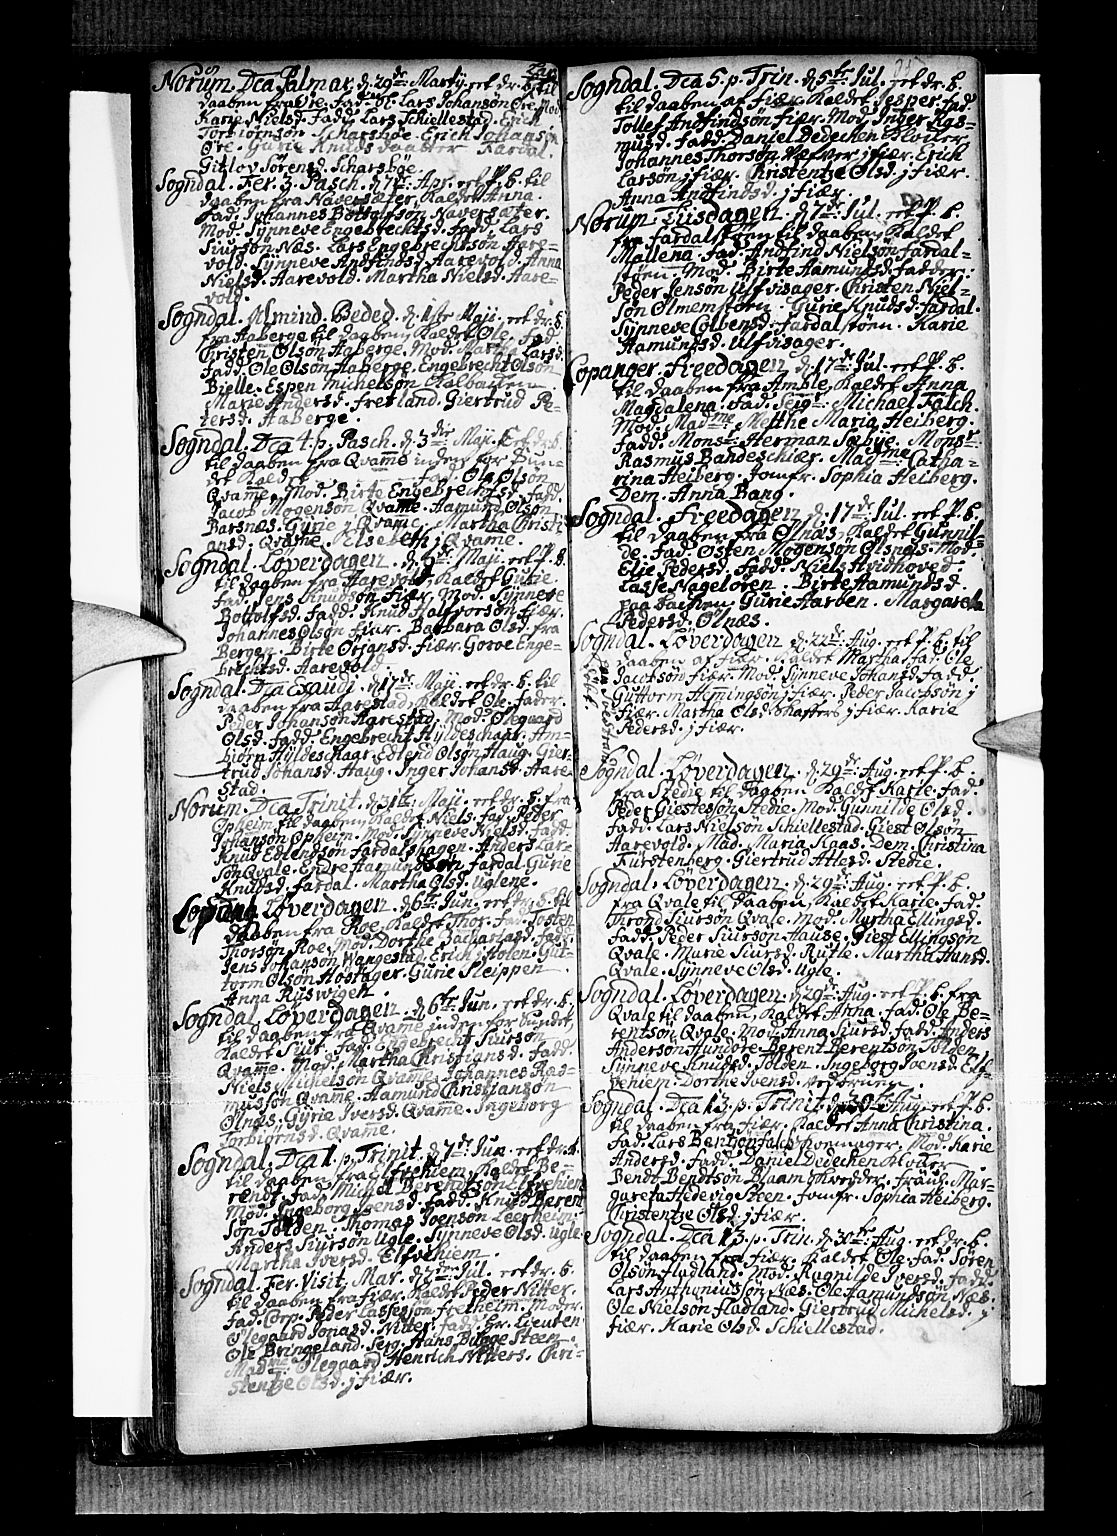 Norum. Dca Palmar. d. 29de Martij. ert dr. b. til
daaben fra Øre. Fad. Ol. Lars Johansøn Øre. Mod.
Karie Nielsd. Fadd. Lars Schiellestad. Erich
Torbiørnsøn Scharsbøe. Erich Johansøn
Øre. Gurie Knuds daatter Fardal.
Gitlov Sørensd. Scharsbøe.
Sogndal. Fer. 3. Pasch. d. 7de Apr. ert P. b. til
daaben fra Naversæter, Kaldet Anna.
Fad. Johannes Bottolfsøn Naversæter.
Mod. Synneve Engebrechtsd. Fadd. Lars
Siursøn Næs. Lars Engebrechtsøn Aare-
vold. Synneve Andfindsd. Aarevold. Anna
Nielsd. Aarevold. Martha Nielsd. Aare-
vold.
Sogndal. Almind. Beded. d. 1ste Maji. ert dr. b.
fra Aaberge til daaben, Kaldet Ole. Fad.
Christen Olsøn Aaberge. Mod. Marie Larsd.
Fadd. Ole Olsøn Aaberge. Engebrecht Olsøn
Bielle. Espen Michelsøn Kalbatten
Marie Andersd. Fretland. Giertrud Pe-
tersd. Aaberge.
Sogndal. Dca 4 p. Pasch. d. 3die Maji. Ert dr. b.
til daaben fra Qvamme inden for Sun-
det Kaldet Fad. Ole Olsøn
Qvame. Mod. Birte Engebrechtsd. Fadd.
Jacob Mogensøn Qvame. Aamund Olsøn
Barsnæs. Gyrie j Qvame. Martha Christi-
ansd. Qvame. Elsebeth j Qvame.
Sogndal. Løverdagen. d. 9de Maji. ert P. b.
til daaben fra Aarevold, Kaldet Gurie.
Fad. Jens Knudsøn Fiær. Mod. Synneve
Bottolfsd. Fadd. Knud Halfvorsøn Fiær.
Johannes Olsøn Fiær. Barbara Olsd. fra
Bergen. Birte Ørjansd. Fiær. Gorve Enge-
brechtsd. Aarevold.
Sogndal. Dca Exaudi. d. 17de Maji. ert dr. b. til
daaben fra Aarestad, Kaldet Ole. Fader.
Peder Johansøn Aarestad. Mod. Olegaard
Olsd. Fadd. Engebrecht Hyldeschaar. Am-
biørn Hyldeschaar. Edlend Olsøn Haug. Gier-
trud Johansd. Haug. Inger Johansd. Aare-
stad.
Norum. Dca Trinit. d. 31te Maji. ert dr. b. fra
Opheim til daaben, Kaldet Niels. Fad. Peder
Johansøn Opheim. Mod. Synneve Nielsd. Fadd.
Knud Edlendsøn Fardalshagen. Anders Lar-
søn Qvale. Endre Aamundsøn Fardal. Gurie
Knudsd. Fardal. Martha Olsd. Uglene.
Løverdagen. d. 6te Jun. ert dr. b. til
daaben fra Roe, Kaldet Thor. Fad. Tosten
Thorsøn Roe. Mod. Dorthe Zachariasd. Fadd.
Jens Johansøn Wangestad. Erich j Stolen. Gut-
torm Olsøn Hostager. Gurie Sleippen
Anna Ryswigen.
Sogndal. Løverdagen. d. 6te Jun. ert dr. b.
til daaben fra Qvame inden for Sundet,
Kaldet Siur. Fad. Engebrecht Siursøn
Qvame. Mod. Martha Christiansd. Fadd.
Niels Michelsøn Qvame. Johannes Ras-
mussøn Qvame. Aamund Christiansøn
Ølnæs. Gyrie Iversd. Qvame. Ingeborg
Torbiørnsd. Qvame.
Sogndal. Dca 1. p. Trinit. d. 7de Jun. ert dr. b.
til daaben fra Elfvehiem, Kaldet Be-
rendt. Fad. Michel Berendtsøn Elfvehiem
Mod. Ingeborg Joensd. Fadd. Knud Berent
søn Tolden. Thomas Joensøn Leerheim.
Anders Siursøn Ugle. Synneve Olsd. Ugle.
Martha Iversd. Elfvehiem.
Sogndal. Fer. Visit. Mar. d. 2den Jul. ert dr. b.
til daaben fra Fiær, Kaldet Peder Nitter.
Fad. Corp. Peder Lassesøn Fretheim. Moder.
Olegaard Jonasd. Nitter. Fadd. Hr. Lieuten
Ole Bringeland. Serg. Hans Bügge Steen.
Madme Olegaard Henrich Nitters. Chri-
stentze Olsd. j Fiær.
Sogndal. Dca 5. p. Trin. d. 5te Jul. ert dr. b.
til daaben af Fiær, Kaldet Jesper. Fad.
Tollef Andfindsøn Fiær. Mod. Inger Ras-
musd. Fadd. Daniel Dedechen Klocker
Johannes Thorsøn Væfver j Fiær. Erich
Larsøn j Fiær. Christentze Olsd. j Fiær.
Anna Andfindsd. j Fiær.
Norum. Tiisdagen. d. 7de Jul. ert P. b.
fra Fardalstøen til daaben, Kaldet
Mallena. Fad. Andfind Nielsøn Fardal-
støen. Mod. Birte Aamundsd. Fadder.
Peder Jensøn Ulfvisager. Christen Niel-
søn Olmemstøen. Gurie Knudsd. Fardal.
Synneve Colbensd. Fardalstøen. Karie
Aamundsd. Ulfvisager.
Copanger. Freedagen d. 17de Jul. ert P. b.
til daaben fra Amble, Kaldet Anna
Magdalena. Fad. Seigr. Michael Falch.
Mod. Madme Metthe Maria Heiberg.
Fadd. Monsr. Herman Sæbye. Monsr.
Rasmus Bandeschiær. Madme Catha-
rina Heiberg. Jomfr. Sophia Heiberg.
Dem. Anna Bang.
Sogndal. Freedagen d. 17de Jul. ert P. b.
til daaben fra Ølnæs, Kaldet Gunnil-
de. Fad. Østen Mogensøn Ølsnæs. Mod.
Elie Pedersd. Fadd. Niels Hvidhoved.
Lasse Nageløren. Birte Aamundsd.
paa bachen. Gurie Haröen. Margareta
Pedersd. Ølnæs.
Sogndal. Løverdagen d. 22de Aug. ert P. b. til
daaben af Fiær, Kaldet Martha. Fad. Ole
Jacobsøn Fiær. Mod. Synneve Johansd. Fadd.
Guttorm Hemingsøn j Fiær. Peder Jacobsøn j
Fiær. Martha Olsd. Schaffers j Fiær. Karie
Pedersd. j Fiær.
Sogndal. Løverdagen. d. 29de Aug. ert P. b.
fra Stedie til daaben, Kaldet Karie. Fad.
Peder Giestesøn Stedie. Mod. Gunnilde Olsd.
Fadd. Lars Nielsøn Schiellestad. Giest Olsøn
Aarevold. Mad. Maria Kaas. Dem. Christina
Fürstenberg. Giertrud Atlesd. Stedie.
Sogndal. Løverdagen. d. 29de Aug. ert P. b.
fra Qvale til daaben, Kaldet Karie. Fad.
Thrond Siursøn Qvale. Mod. Martha Ellingsd.
Fadd. Peder Siursøn Hause. Giest Ellingsøn
Qvale. Marie Siursd. Rutle. Martha Hansd.
Qvale. Synneve Olsd. Ugle.
Sogndal. Løverdagen. d. 29de Aug. ert P. b. fra
Qvale til daaben, Kaldet Anna. Fad. Ole Be-
rentsøn Qvale. Mod. Anna Siursd. Fadd. Anders
Andersøn Hundere. Berent Berentsøn Tolden.
Synneve Knudsd. Tolden. Ingeborg Joensd. Elf-
vehiem. Dorthe Ivensd.
Sogndal. Dca 13. p. Trinit. d. 30te Aug. ert P. b.
til daaben fra Fiær, Kaldet Anna Christina.
Fad. Lars Bentsøn Falch Skomager. Mod. Karie
Andersd. Fadd. Daniel Dedechen Klocker.
Bendt Bendtsøn Blaamyhrvejer. Frauy Mar-
gareta Hedevig Steen. Jomfr. Sophia Heiberg.
Christentze Olsd. j Fiær.
Sogndal. Dca 13. p. Trin. d. 30te Aug. ert dr. b.
til daaben fra Fiær, Kaldet Ole. Fad. Søren
Olsøn Fladland. Mod. Ragnilde Iversd. Fadd.
Lars Anthoniussøn Næs. Ole Iamundsøn Næs.
Ole Nielsøn Fladland. Giertrud Michelsd. j
Fiær. Karie Olsd. Schiellestad.